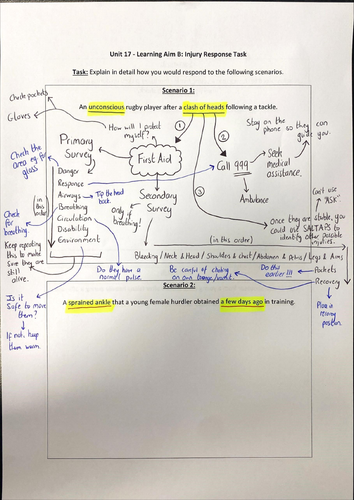 Unit 17 - Learning Aim B: Injury Response Task
Task: Explain in detail how you would respond to the following scenarios.
Scenario 1:
An unconscious rugby player after a clash of heads following a tackle.
Check pockets
Gloves
How will I protect
myself?
1
2
3
Stay on the
phone so they can
guide you.
Check the
area e.g for
glass
Primary
Survey
First Aid
Call 999
Seek
medical
assistance.
Ambulance
Danger
Response
Airways
Tip the head
back.
Breathing
Circulation
Disability
Environment
(in this
order)
Secondary
Survey
Only if
breathing!
Can't use
"ASK".
Check
for
breathing.
Once they are stable, you
could use SALTAPS to
identify other possible
injuries.
(in this order)
Keep repeating
this to make
sure they are
still
alive.
Bleeding / Neck & Head / Shoulders & chest / Abdomen & Pelvis / Legs & Arms
Do they have a
normal pulse
Be careful of choking
on own tongue/vomit.
Do this
earlier!!!
Pockets
Recovery
Scenario 2:
A sprained ankle that a young female hurdler obtained a few days ago in training.
Is it
safe to move
them?
If not, keep
them warm
Place in
recovery
position.